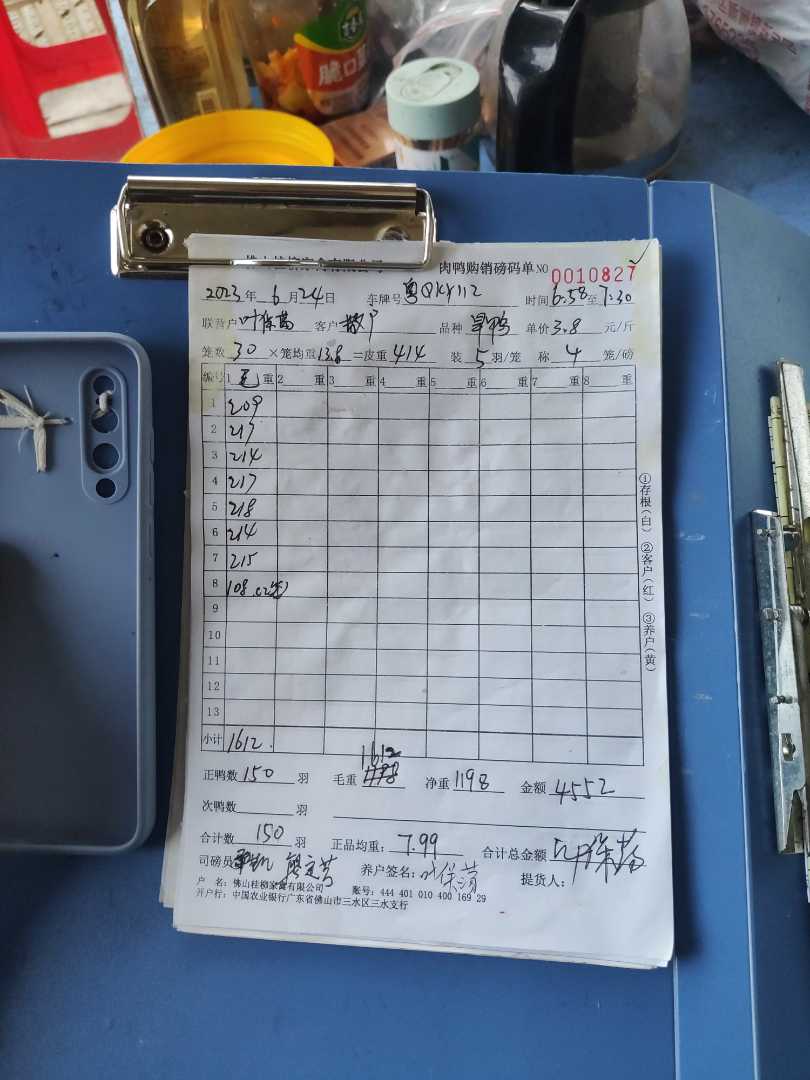 脆口
佛山桂柳家禽有限公司 肉鸭购销磅码单 NO 0010827
2023年 6月24日 车牌号 粤QKY112 时间 6:58至7:30
联营户 叶保 客户 散户 品种 旱鸭 单价 3.8 元/斤
笼数 30 ×笼均重 13.8 =皮重 414 装 5 羽/笼 称 4 笼/磅
编号 1 毛 重 2 重 3 重 4 重 5 重 6 重 7 重 8 重
1 209
2 217
3 214
4 217
5 218
6 214
7 215
8 108 (2笼)
9
10
11
12
13
小计 1612.
1612
正鸭数 150 羽 毛重 净重 1198 金额 4552
次鸭数 羽
合计数 150 羽 正品均重: 7.99 合计总金额 叶保
司磅员 养户签名: 叶保 提货人:
户 名: 佛山桂柳家禽有限公司 账号: 444 401 010 400 169 29
开户行: 中国农业银行广东省佛山市三水区三水支行
①存根(白) ②客户(红) ③养户(黄)